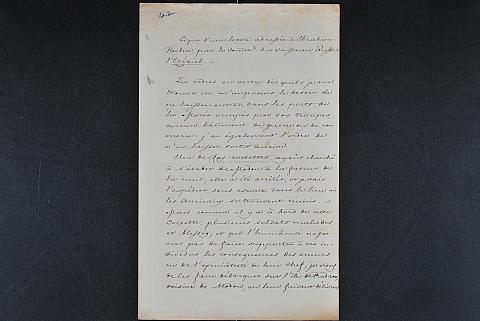 42
Copie d'une lettre adressée à Ibrahim
Pacha, par le Comm.t du vaisseau Russe
l'Ezéchiel.
Les ordres en vertu des quels je me
trouve ici, m'imposent le devoir de
ne laisser entrer, dans les ports de
la Morée occupés par vos troupes,
aucun bâtiment de guerre ou de com-
merce; j'ai également l'ordre de
n'en laisser sortir aucun.
Une de vos corvettes, ayant cherché
à s'évader de Modon à la faveur de
la nuit, elle a été arrêtée, et je vais
l'expédier sous escorte dans le lieu où
les Amiraux se trouvent réunis. -
Mais comme il y a à bord de cette
Corvette, plusieurs soldats malades
et blessés, et que l'humanité ne per-
met pas de faire supporter à ces in-
dividus les conséquences des erreurs
ou de l'opiniâtreté de leur chef, je viens
de les faire débarquer sur l'île de
voisine de Modon, en leur faisant délivrer